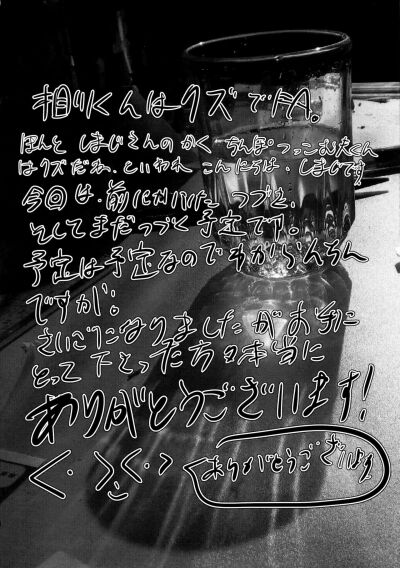 相川くんはクズでFA。
ほんと しまじさんのかく ちんぽつっこむ大くん
はクズだね、といわれ こんにちは、しまじです
今回は、前にかいた つづき、
そしてまだつづく予定です。
予定は予定なのでわからんちん
ですが。
さいごになりましたがお手に
とって下さった方々本当に
ありがとうございます!
ありがとうございます